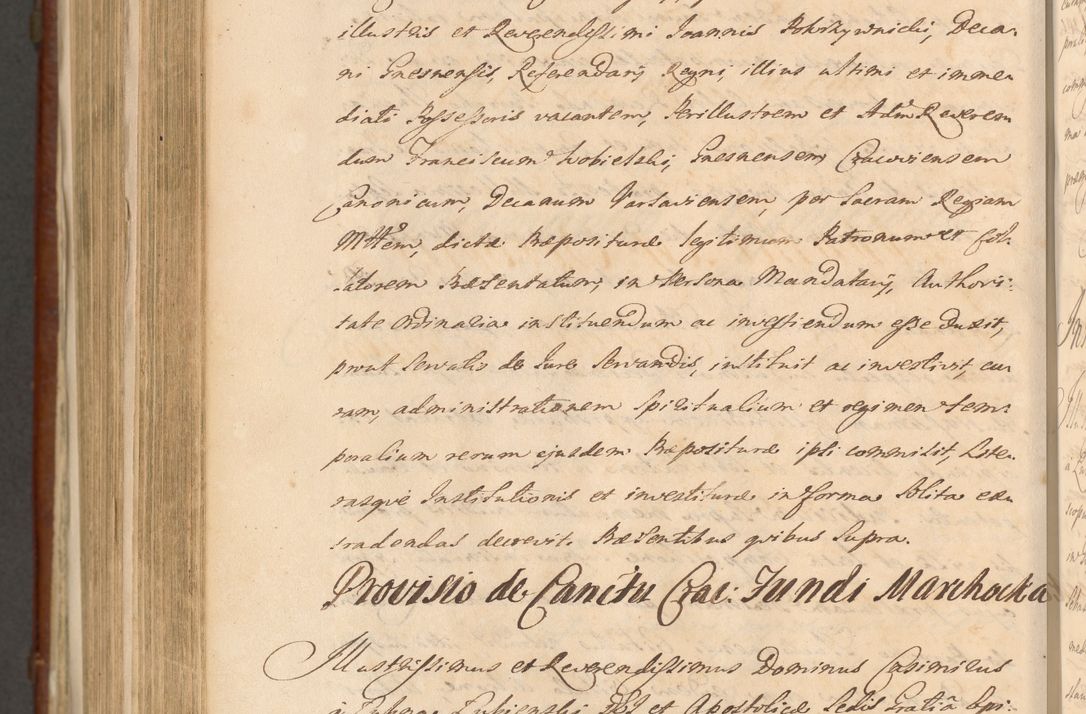 illustris et Reverendissimi Joannis Pokrzywnicki, Deca:
ni Gnesnensis, Referendarij Regni, illius ultimi et imme
diati Possessoris vacantem, Perillustrem et Adm Reveren
dum Franciscum Kobielski, Gnesnensem Cracoviensem
Canonicum, Decanum Varsaviensem, per Sacram Regiam
Mttem, dictæ Præposituræ legitimum Patronum et Col
latorem Præsentatum, in Persona Mandatarij, Authori:
tate Ordinaria instituendum ac investiendum esse duxit,
prout servatis de Jure servandis, instituit ac investivit, cu
ram, administrationem Spiritualium et regimen tem:
poralium rerum ejusdem Præpositura ipsi commisit, Lite
rasque Institutionis et investituræ in forma solita ex
tradendas decrevit. Præsentibus quibus supra.
Provisio de Canctu Crac: Fundi Marchocka
Illustrissimus et Reverendissimus Dominus Casimirus
à Łubna Łubienski Dei et Apostolicæ Sedis Gratiâ Epi: